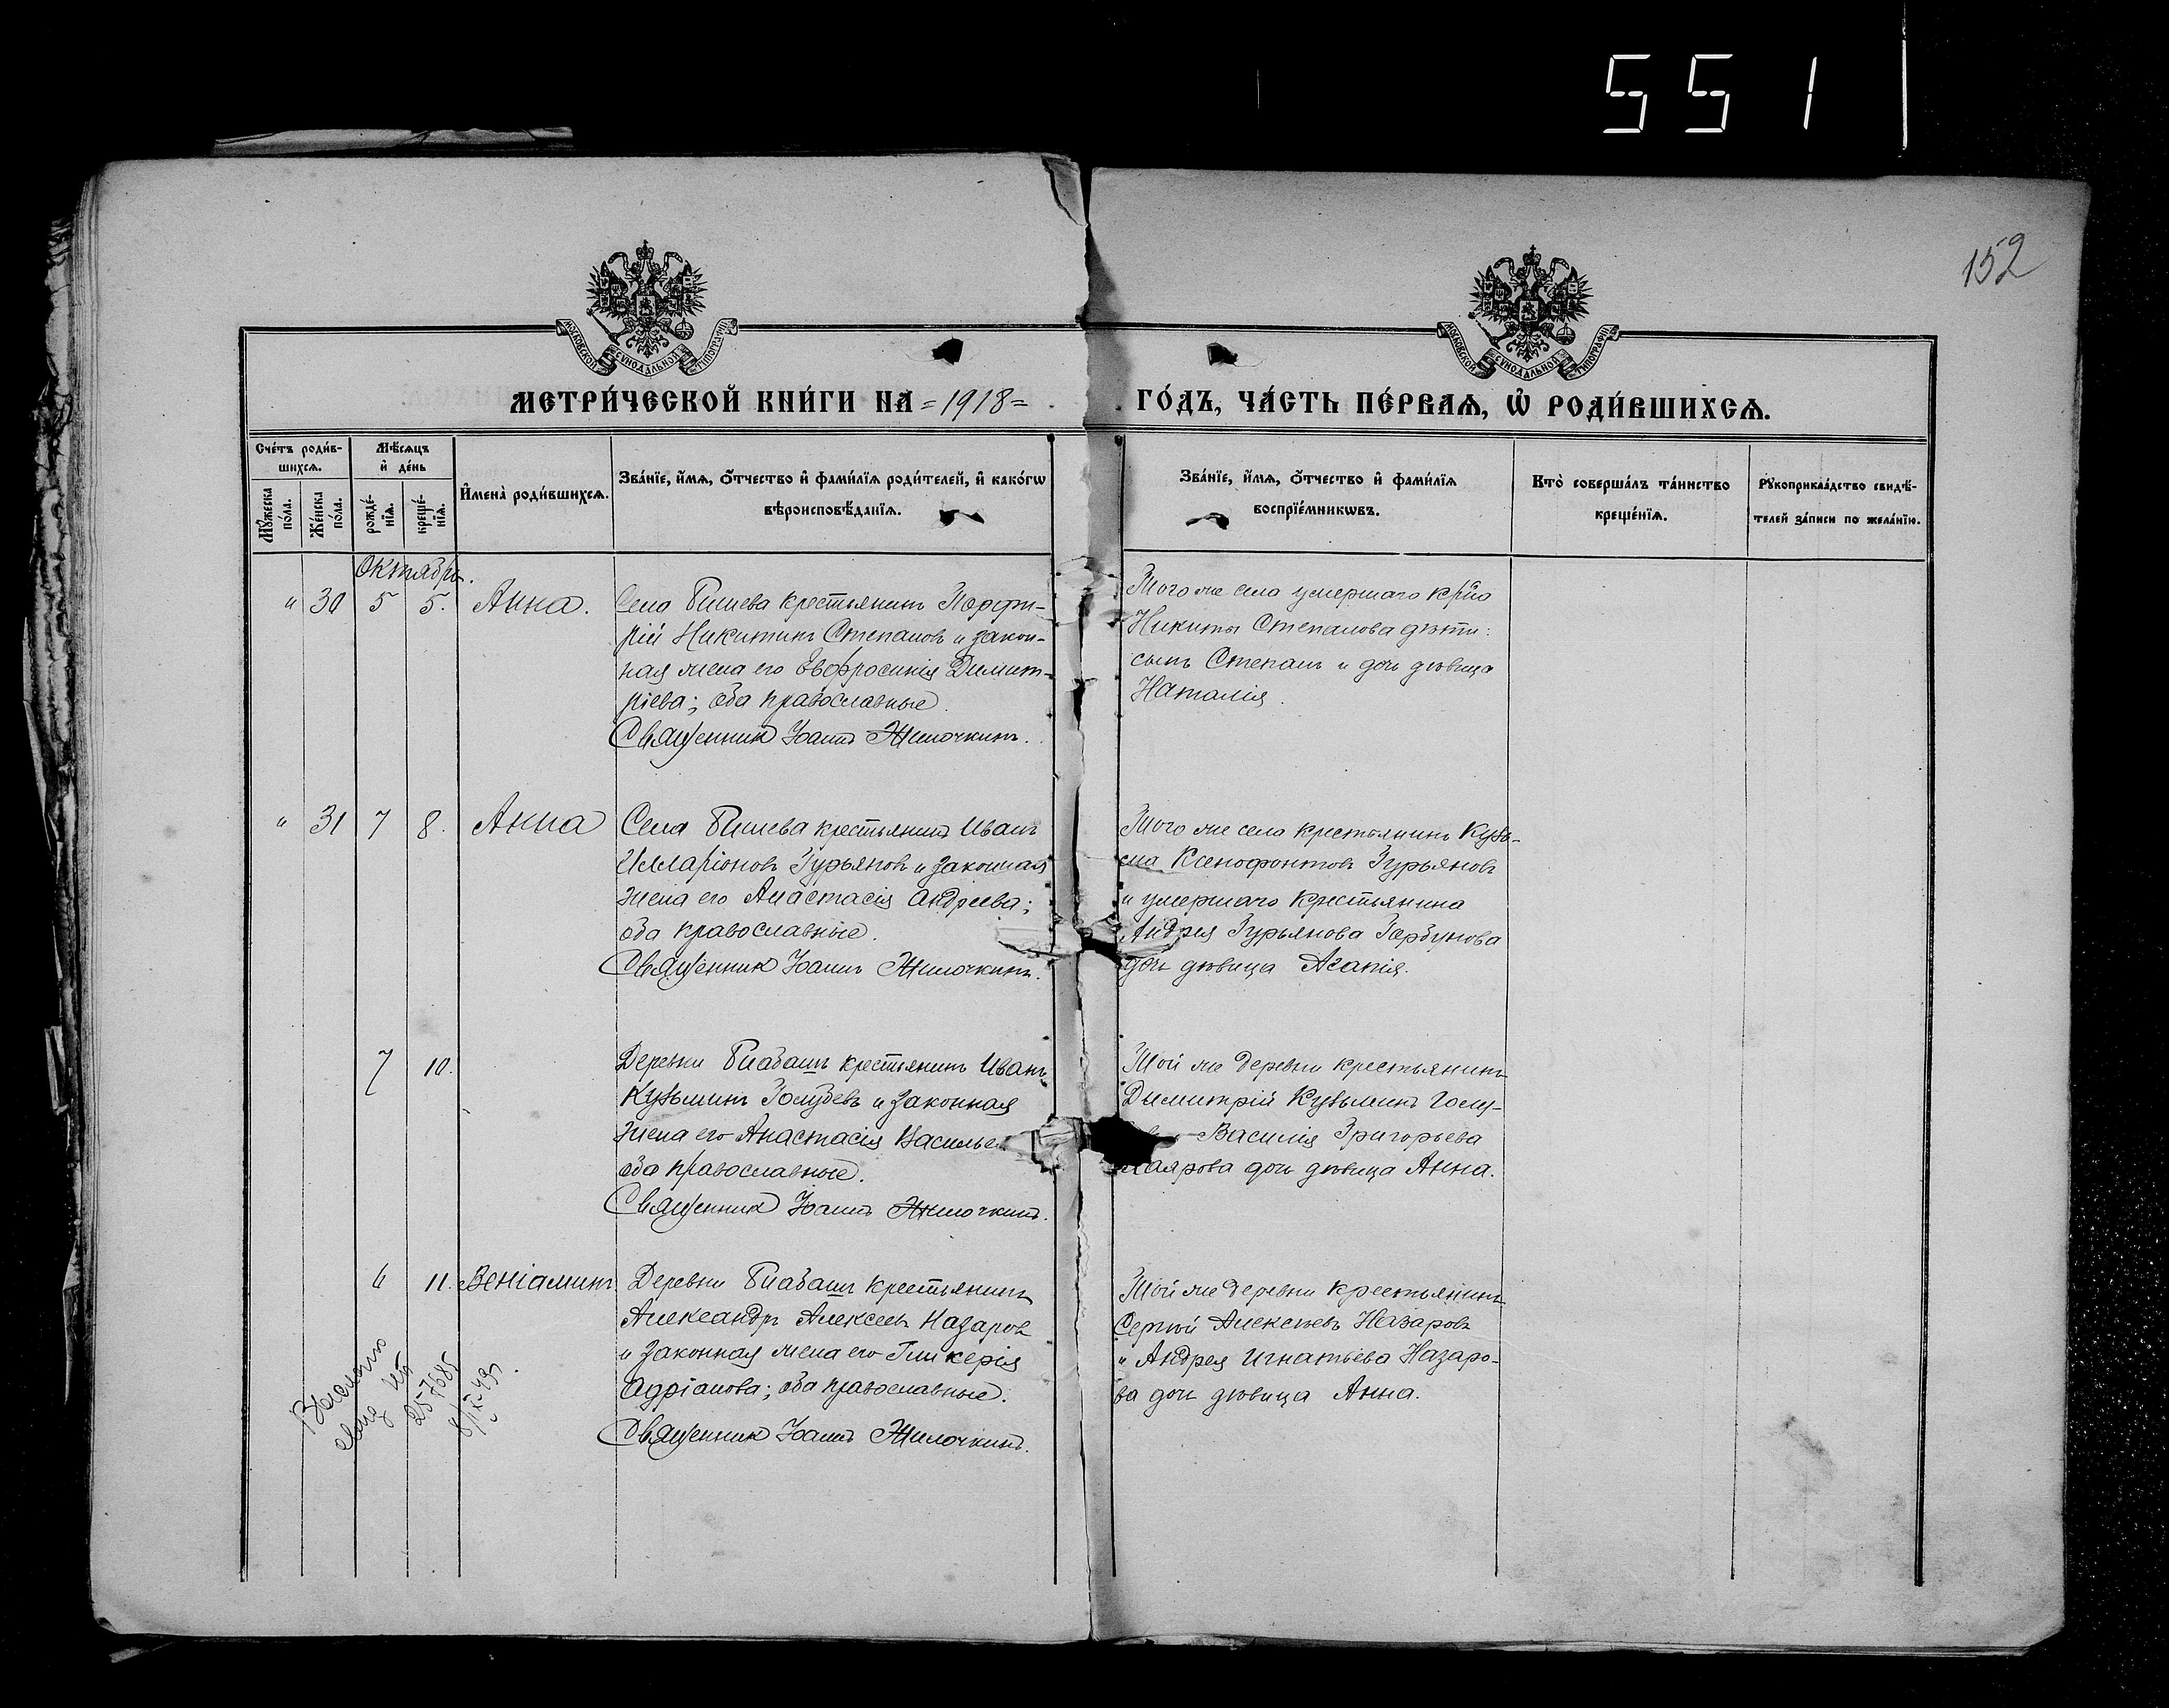 551
152
МОСКОВСКОЙ СѴНОДАЛЬНОЙ ТИПОГРАФІИ
МОСКОВСКОЙ СѴНОДАЛЬНОЙ ТИПОГРАФІИ
МЕТРИ́ЧЕСКОЙ КНИ́ГИ НА =1918= ГО́ДЪ, ЧА́СТЬ ПЕ́РВАѦ, Ѽ РОДИ́ВШИХСѦ.
Сче́тъ роди́в-
шихсѧ.
Мѣ́сѧцъ
и҆ де́нь
Мꙋ́жеска
по́ла.
Же́нска
по́ла.
рожде́-
нїѧ.
креще́-
нїѧ.
И҆мена̀ роди́вшихсѧ.
Зва́нїе, и҆́мѧ, ѻ҆́тчество и҆ фамилїѧ роди́телей, и҆ како́гѡ
вѣроисповѣ́данїѧ.
Зва́нїе, и҆́мѧ, ѻ҆́тчество и҆ фами́лїѧ
воспрїе́мникѡвъ.
Кто̀ соверша́лъ та́инство
креще́нїѧ.
Рꙋкоприкла́дство свидѣ́-
телей за́писи по жела́нїю.
Октябрь.
" 30 5 5. Анна.
Села крестьянинъ Порфи-
рій Никитинъ Степановъ и закон-
ная жена его Евфросинія Димит-
ріева; оба православные.
Священникъ Іоаннъ Жилочкинъ.
Того же села умершаго кр-на
Никиты Степанова дѣти:
сынъ Степанъ и дочь дѣвица
Наталія.
" 31 7 8. Анна
Села крестьянинъ Иванъ
Илларіоновъ Гурьяновъ и законная
жена его Анастасія Андреева;
оба православные.
Священникъ Іоаннъ Жилочкинъ.
Того же села крестьянинъ Кузь-
ма Ксенофонтовъ Гурьяновъ
и умершаго крестьянина
Андрея Гурьянова Горбунова
дочь дѣвица Агапія.
7 10.
Деревни крестьянинъ Иванъ
Кузьминъ Голубевъ и законная
жена его Анастасія Василье
оба православные.
Священникъ Іоаннъ Жилочкинъ.
Той же деревни крестьянинъ
Димитрій Кузьминъ Голу-
Василія Григорьева
дочь дѣвица Анна.
6 11. Веніаминъ
Деревни крестьянинъ
Александръ Алексеевъ Назаровъ
и законная жена его Гликерія
Адріанова; оба православные.
Священникъ Іоаннъ Жилочкинъ.
Той же деревни крестьянинъ
Сергѣй Алексѣевъ Назаровъ
и Андрея Игнатьева Назаро-
ва дочь дѣвица Анна.